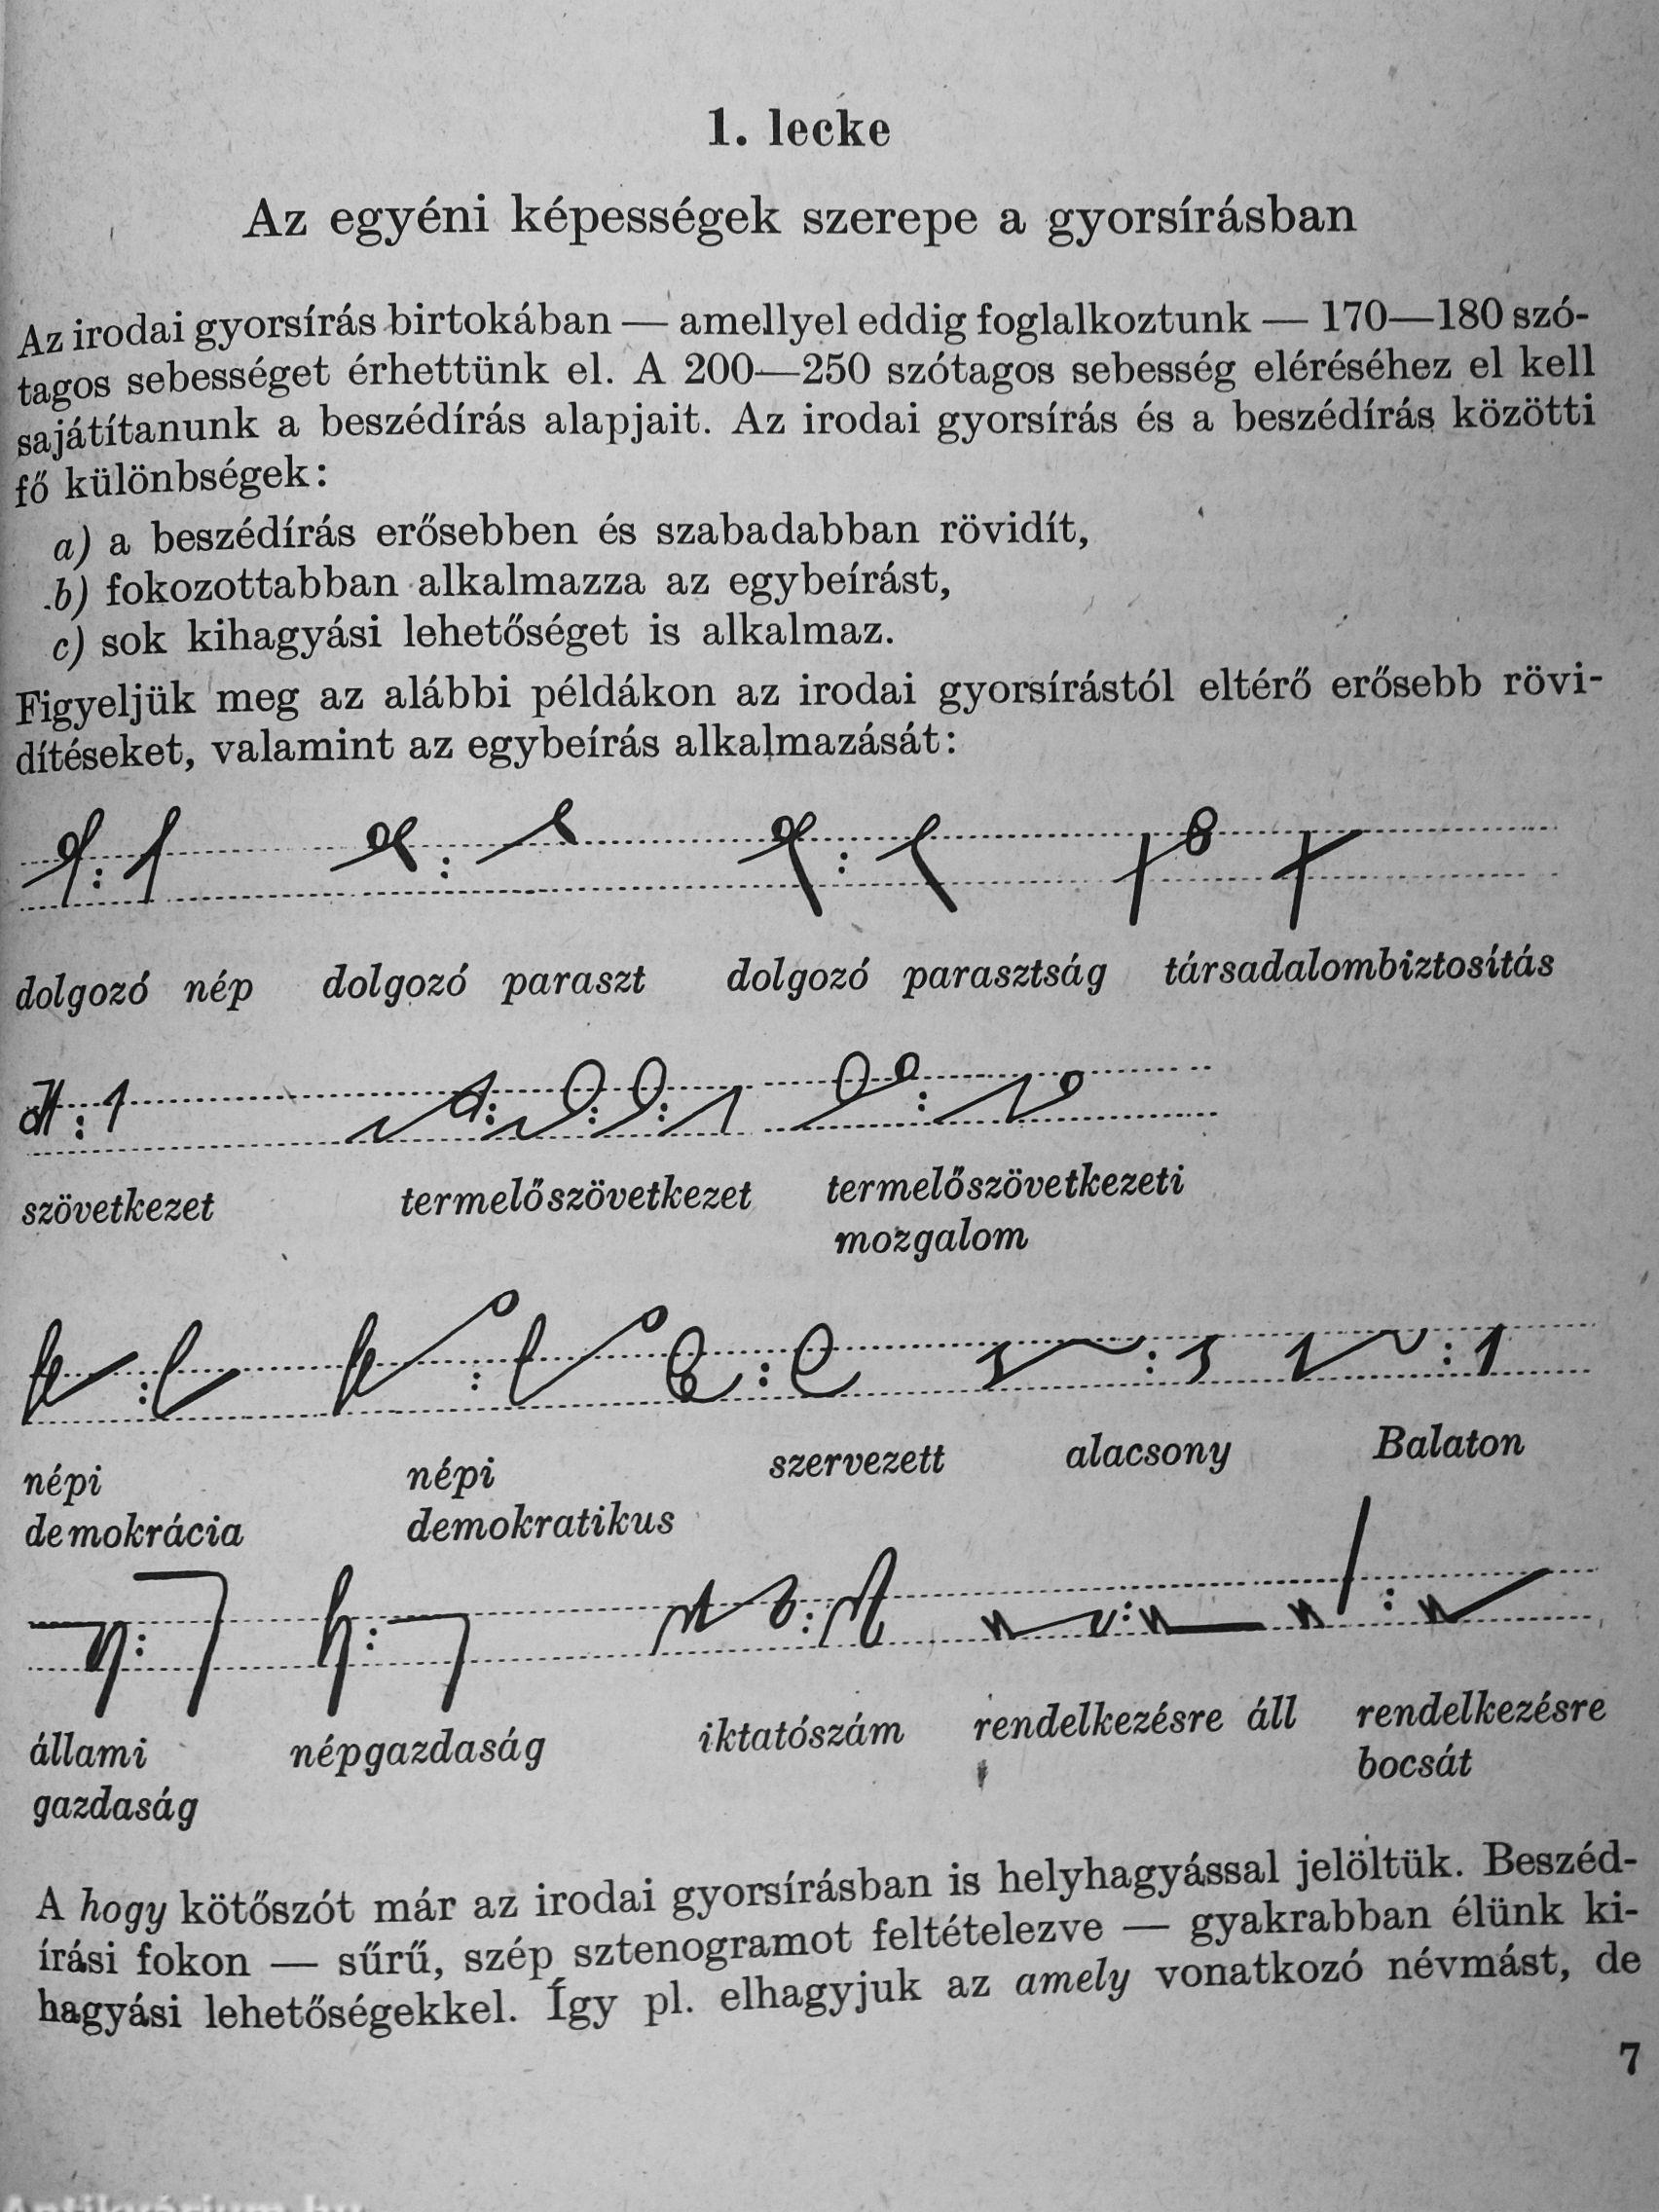 1. lecke
Az egyéni képességek szerepe a gyorsírásban
Az irodai gyorsírás birtokában — amellyel eddig foglalkoztunk — 170—180 szó-
tagos sebességet érhettünk el. A 200—250 szótagos sebesség eléréséhez el kell
sajátítanunk a beszédírás alapjait. Az irodai gyorsírás és a beszédírás közötti
fő különbségek:
a) a beszédírás erősebben és szabadabban rövidít,
b) fokozottabban alkalmazza az egybeírást,
c) sok kihagyási lehetőséget is alkalmaz.
Figyeljük meg az alábbi példákon az irodai gyorsírástól eltérő erősebb rövi-
dítéseket, valamint az egybeírás alkalmazását:
dolgozó nép dolgozó paraszt dolgozó parasztság társadalombiztosítás
szövetkezet termelőszövetkezet termelőszövetkezeti
mozgalom
népi népi szervezett alacsony Balaton
demokrácia demokratikus
állami népgazdaság iktatószám rendelkezésre áll rendelkezésre
gazdaság bocsát
A hogy kötőszót már az irodai gyorsírásban is helyhagyással jelöltük. Beszéd-
írási fokon — sűrű, szép sztenogramot feltételezve — gyakrabban élünk ki-
hagyási lehetőségekkel. Így pl. elhagyjuk az amely vonatkozó névmást, de
7
Antikvárium.hu